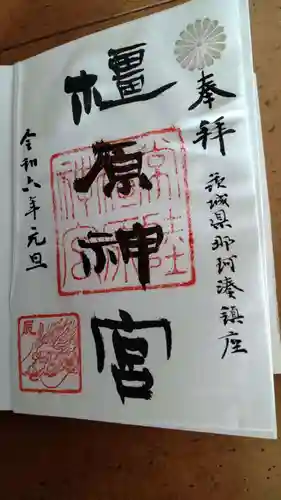 奉拝
茨城県那珂湊鎮座
橿原神宮
令和六年元旦
辰